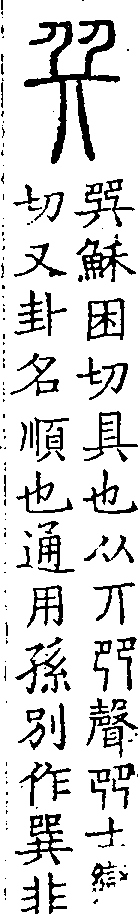 巽蘇困切具也从丌𠨎聲𠨎士戀
切又卦名順也通用孫別作巽非